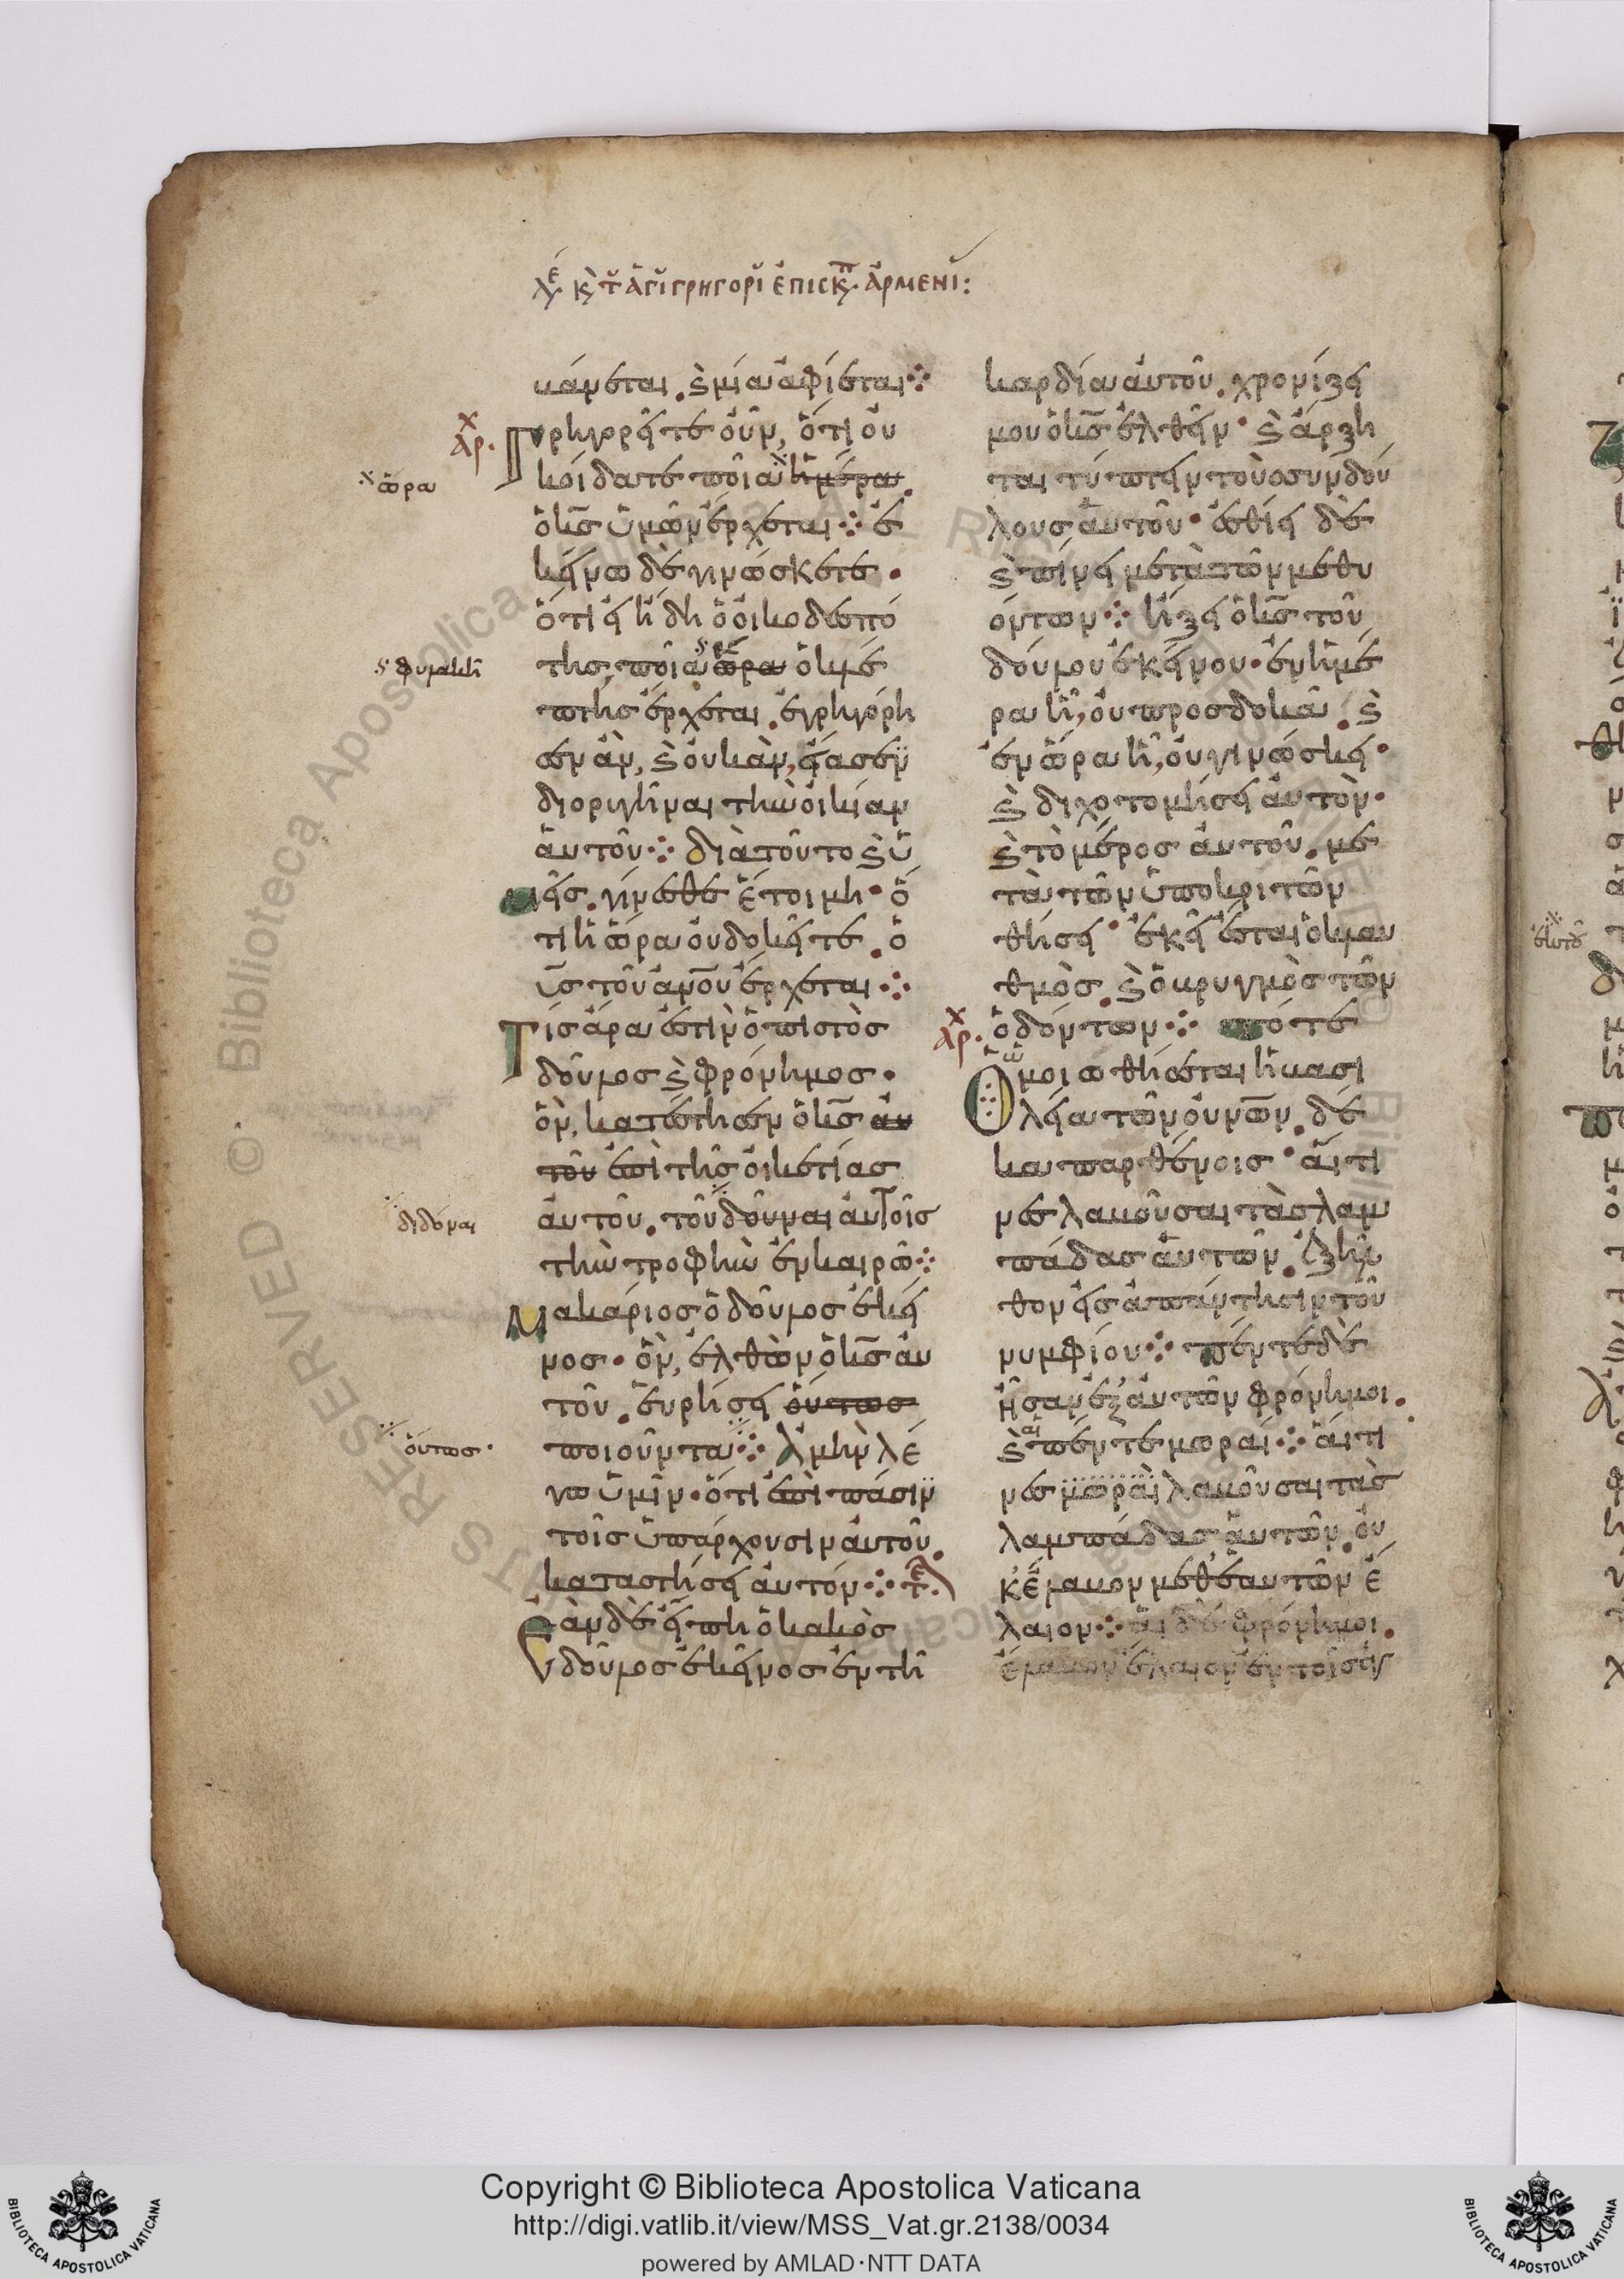 λγ ε κ, τ ἁγι γρηγορι ἐπισκπ ἀρμενι:
βάνεται. ϗ μία ἀφίεται
ἀρχ.
Γρηγορεῖτε οὖν, ὅτι οὐ
κοίδατε ποία ἡμέρα
ὥρα
ὁ κ̅ς̅ ὑμῶν ἔρχεται· ἐ
κείνω δὲ γινώσκετε·
ὅτι εἰ ἤδη ὁ οἰκοδεσπό
της, ποία ὥρα ὁ κλέ
φυλακῆ
πτης ἔρχεται. ἐγρηγόρη
σεν ἂν, ϗ οὐκ ἂν, εἴασεν
διορυγῆναι τὴν οἰκίαν
αὐτοῦ· διὰ τοῦτο ϗ ὑ
μεῖς. γίνεσθε ἕτοιμοι· ὅ
τι ἧ ὥρα οὐ δοκεῖτε. ὁ
υ̅ς̅ τοῦ α̅ν̅ο̅υ̅ ἔρχεται·
Τίς ἄρα ἐστὶν ὁ πιστὸς
δοῦλος ϗ φρόνιμος·
ὃν, κατέστησεν ὁ κ̅ς̅ αὐ
τοῦ ἐπὶ τῆς οἰκετίας
αὐτοῦ. τοῦ δοῦναι αὐτοῖς
διδόναι
τὴν τροφὴν ἐν καιρῶ
Μακάριος ὁ δοῦλος ἐκεῖ
νος· ὃν, ἐλθὼν ὁ κ̅ς̅ αὐ
τοῦ. εὑρήσει οὕτως
ποιοῦντα· Ἀμὴν λέ
οὕτως·
γω ὑμῖν· ὅτι ἐπὶ πάσιν
τοῖς ὑπάρχουσιν αὐτοῦ.
καταστήσει αὐτόν· τε
Ἐὰν δὲ εἴπη ὁ κακὸς
δοῦλος ἐκεῖνος ἐν τῆ
καρδία αὐτοῦ. χρονίζει
μου ὁ κ̅ς̅ ἐλθεῖν· ϗ ἄρξη
ται τύπτειν τοὺς συνδού
λους αὐτοῦ· ἐσθίει δὲ
ϗ πίνει μετὰ τῶν μεθυ
όντων· ἥξει ὁ κ̅ς̅ τοῦ
δούλου ἐκείνου· ἐν ἡμέ
ρα ἧ, οὐ προσδοκᾶ. ϗ
ἐν ὥρα ἧ, οὐ γινώσκει·
ϗ διχοτομήσει αὐτὸν·
ϗ τὸ μέρος αὐτοῦ. με
τὰ τῶν ὑποκριτῶν
θήσει· ἐκεῖ ἔσται ὁ κλαυ
θμὸς. ϗ ὁ βρυγμὸς τῶν
ἀρχ.
ὀδόντων· τότε
Ὁμοιωθήσεται ἡ βασι
λεία τῶν ο̅υ̅ν̅ω̅ν̅. δέ
κα παρθένοις· αἵτι
νες λαβοῦσαι τὰς λαμ
πάδας αὐτῶν. ἐξῆλ
θον εἰς ἀπάντησιν τοῦ
νυμφίου· πέντε δὲ
ἦσαν ἐξ αὐτῶν φρόνιμοι.
ϗ αἱ πέντε μωραί· αἵτι
νες μωραὶ λαβοῦσαι τὰς
λαμπάδας αὐτῶν. οὐ
κ ἔλαβον μεθ' ἑαυτῶν ἔ
λαιον· αἱ δὲ φρόνιμοι.
ἔλαβον ἔλαιον ἐν τοῖς ἀγ
Copyright © Biblioteca Apostolica Vaticana
http://digi.vatlib.it/view/MSS_Vat.gr.2138/0034
powered by AMLAD·NTT DATA
BIBLIOTECA APOSTOLICA VATICANA
BIBLIOTECA APOSTOLICA VATICANA